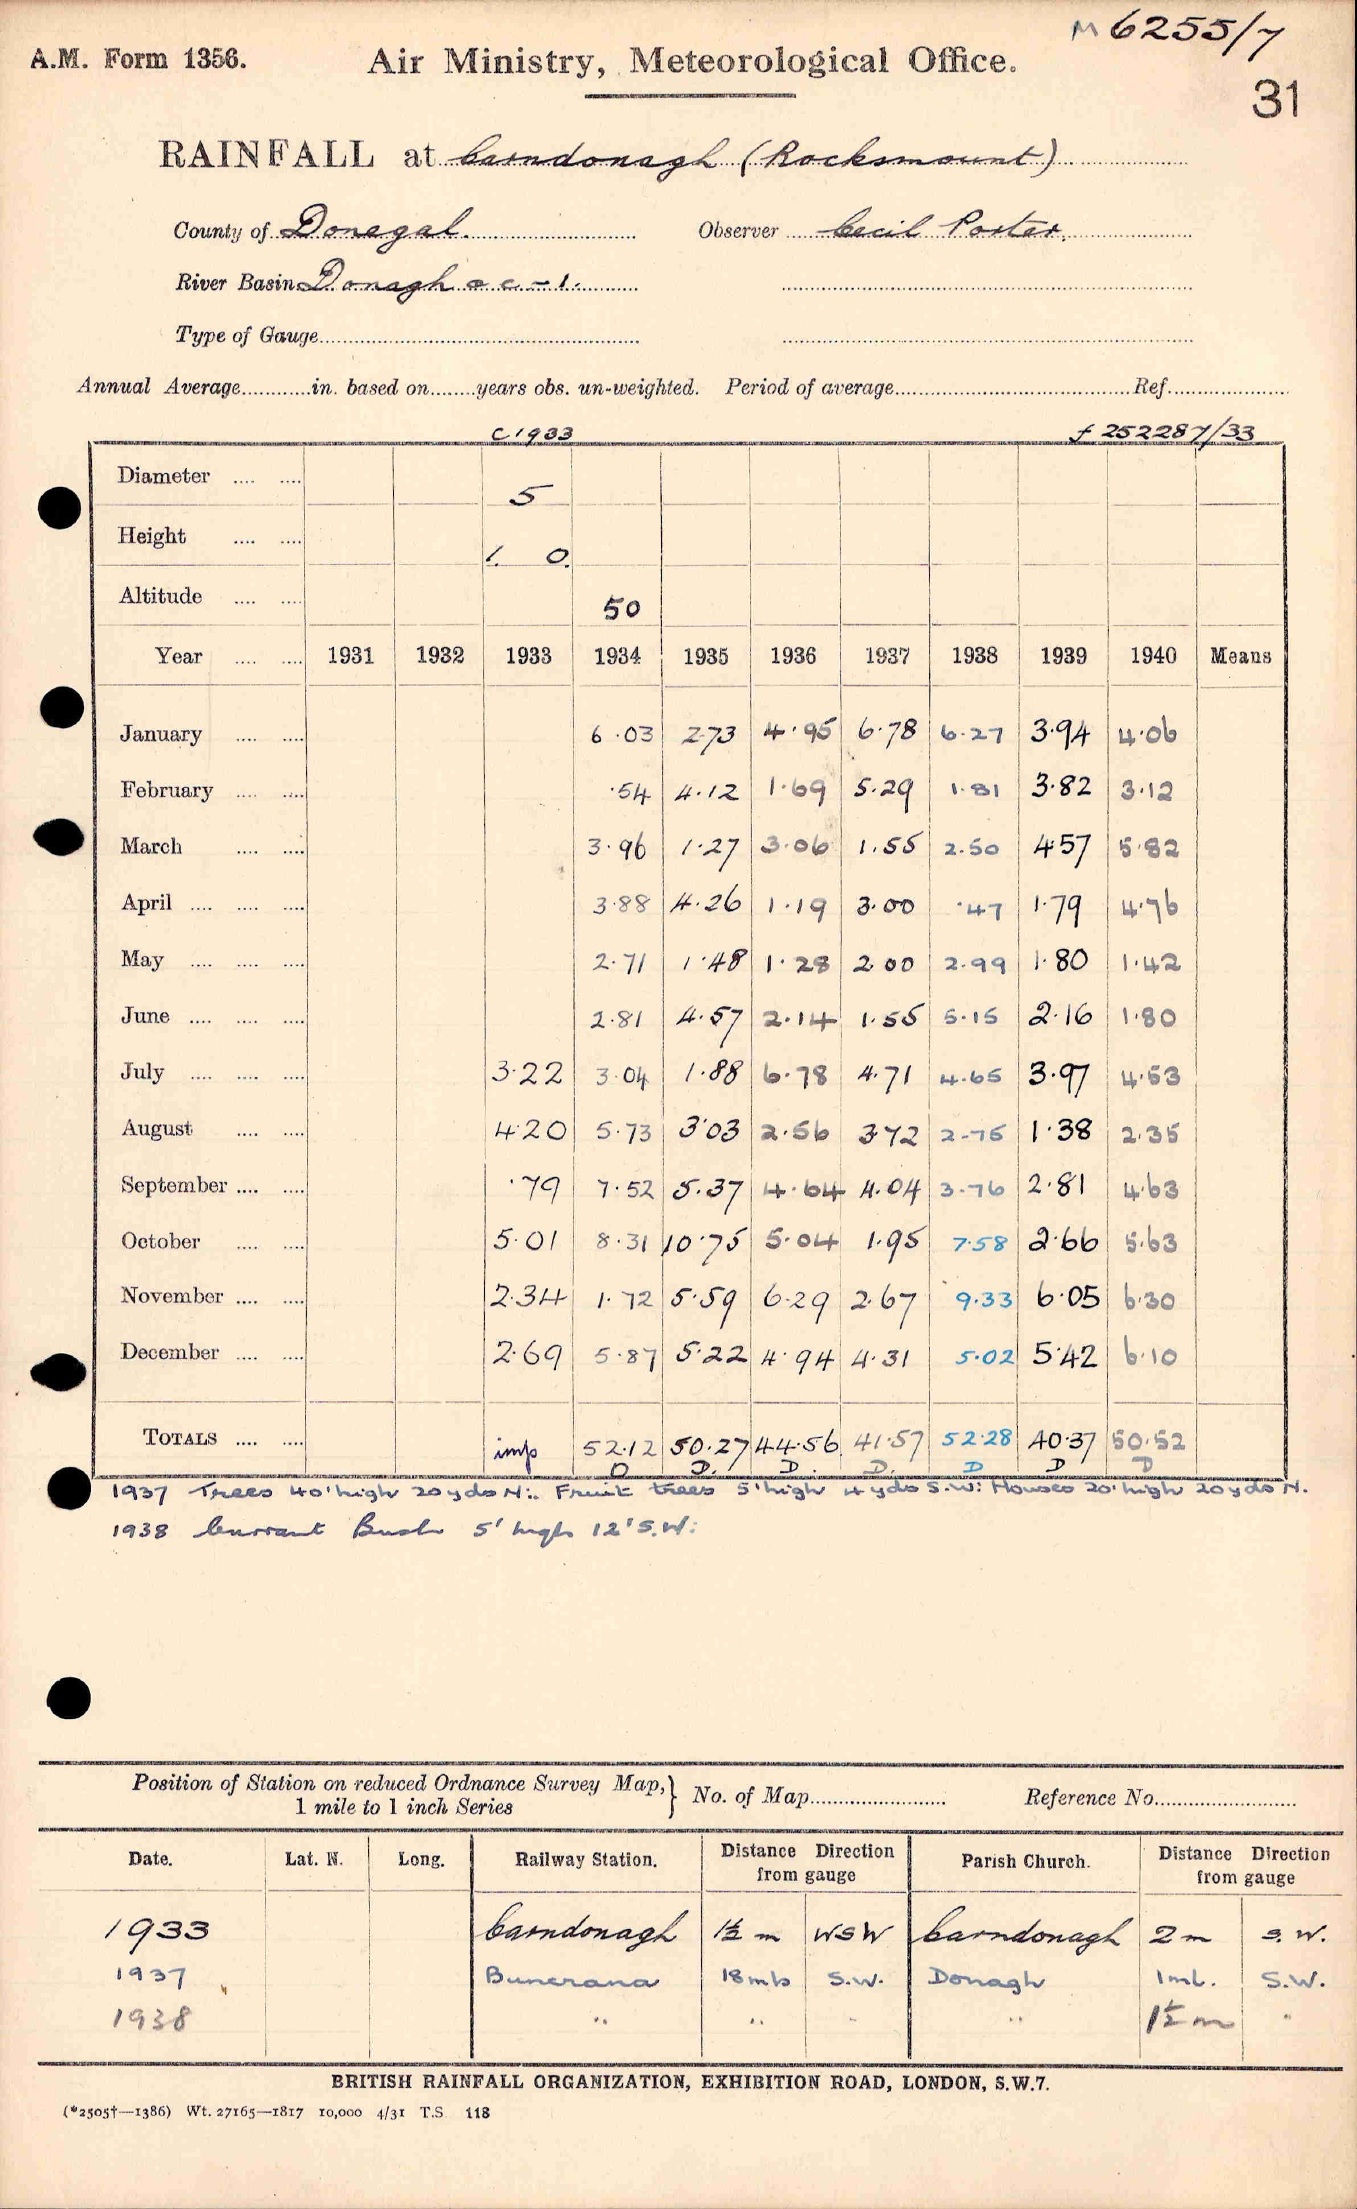 M 6255/7
A.M. Form 1356. Air Ministry, Meteorological Office.
31
RAINFALL at Carndonagh (Rocksmount)
County of Donegal. Observer Cecil Porter.
River Basin Donagh & c - 1.
Type of Gauge
Annual Average in. based on years obs. un-weighted. Period of average Ref.
C1933 f 252287/33
Diameter 5
Height 1. 0.
Altitude 50
Year 1931 1932 1933 1934 1935 1936 1937 1938 1939 1940 Means
January 6.03 2.73 4.95 6.78 6.27 3.94 4.06
February .54 4.12 1.69 5.29 1.81 3.82 3.12
March 3.96 1.27 3.06 1.55 2.50 4.57 5.82
April 3.88 4.26 1.19 3.00 .47 1.79 4.76
May 2.71 1.48 1.28 2.00 2.99 1.80 1.42
June 2.81 4.57 2.14 1.55 5.15 2.16 1.80
July 3.22 3.04 1.88 6.78 4.71 4.65 3.97 4.53
August 4.20 5.73 3.03 2.56 3.72 2.75 1.38 2.35
September .79 7.52 5.37 4.64 4.04 3.76 2.81 4.63
October 5.01 8.31 10.75 5.04 1.95 7.58 2.66 5.63
November 2.34 1.72 5.59 6.29 2.67 9.33 6.05 6.30
December 2.69 5.87 5.22 4.94 4.31 5.02 5.42 6.10
TOTALS imp 52.12 50.27 44.56 41.57 52.28 40.37 50.52
D D. D. D. D D D
1937 Trees 40' high 20 yds N:. Fruit trees 5' high 4 yds S.W: Houses 20' high 20 yds N.
1938 Currant Bush 5' high 12' S.W:
Position of Station on reduced Ordnance Survey Map, } No. of Map Reference No.
1 mile to 1 inch Series
Date. Lat. N. Long. Railway Station. Distance Direction from gauge Parish Church. Distance Direction from gauge
1933 Carndonagh 1½ m WSW Carndonagh 2 m S.W.
1937 Buncrana 18 mls S.W. Donagh 1 ml. S.W.
1938 " " " " 1½ m "
BRITISH RAINFALL ORGANIZATION, EXHIBITION ROAD, LONDON, S.W.7.
(*2505†—1386) Wt. 27165—1817 10,000 4/31 T.S 118